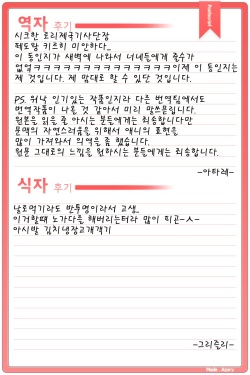 역자 후기
시크한 로리제국기사단장
페도달 키르히 미안하다..
이 동인지가 새벽에 나와서 너네들에게 줄수가
없엌ㅋㅋㅋㅋㅋㅋㅋㅋㅋㅋㅋㅋ이제 이 동인지는
제 것입니다. 제 맘대로 할 수 있단 것입니다.
PS. 워낙 인기있는 작품인지라 다른 번역팀에서도
번역작품이 나온 것 같아서 미리 말쓰드립니다.
원문을 읽을 줄 아시는 분들에게는 죄송합니다만
문맥의 자연스러움을 위해서 애니의 표현을
많이 가져와서 의역을 좀 했습니다.
원문 그대로의 느낌을 원하시는 분들에게는 죄송합니다.
-아타레-
식자 후기
날로먹기라도 반투명이라서 고생..
이거할때 노가다를 해버리는터라 많이 피곤-ㅅ-
아시발 김치냉장고개객기
-그리즐리-